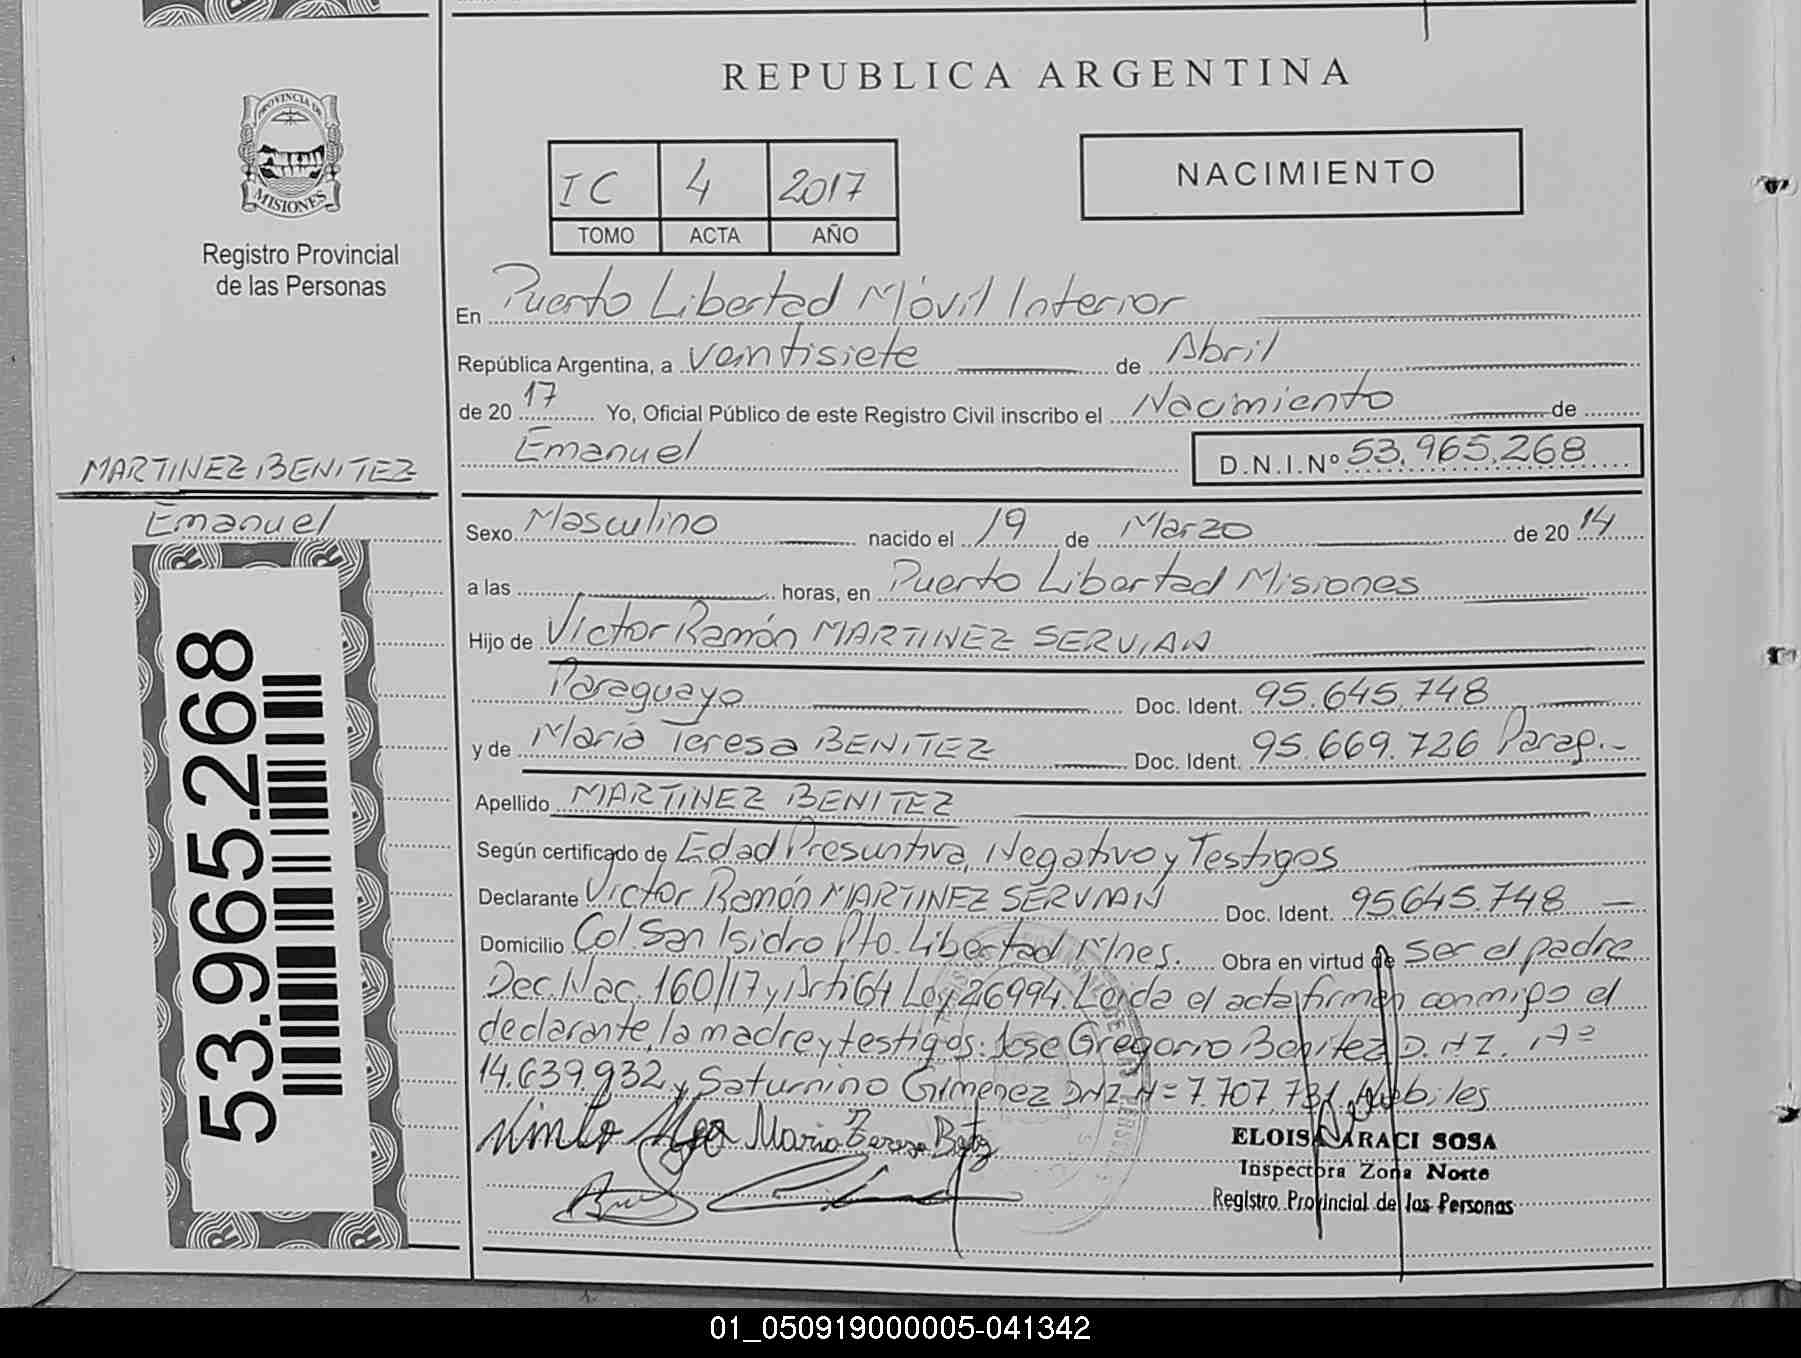 REPUBLICA ARGENTINA
PROVINCIA DE
MISIONES
Registro Provincial
de las Personas
IC 4 2017
TOMO ACTA AÑO
NACIMIENTO
En Puerto Libertad Móvil Interior
República Argentina, a veintisiete de Abril
de 20 17 Yo, Oficial Público de este Registro Civil inscribo el Nacimiento de
Emanuel D.N.I.Nº 53.965.268
MARTINEZ BENITEZ
Emanuel
53.965.268
Sexo Masculino nacido el 19 de Marzo de 20 14
a las horas, en Puerto Libertad Misiones
Hijo de Victor Ramón MARTINEZ SERVIAN
Paraguayo Doc. Ident. 95.645.748
y de María Teresa BENITEZ Doc. Ident. 95.669.726 Parag.-
Apellido MARTINEZ BENITEZ
Según certificado de Edad Presuntiva, Negativo y Testigos
Declarante Victor Ramón MARTINEZ SERVIAN Doc. Ident. 95645.748
Domicilio Col. San Isidro Pto. Libertad Mnes. Obra en virtud de ser el padre
Dec. Nac. 160/17 y Arti 64 Ley 26994. Leida el acta firman conmigo el
declarante, la madre y testigos: Jose Gregorio Benitez D.NI. Nº
14.639.932 y Saturnino Gimenez DNI N= 7.707.731 Habiles
Maria Teresa
ELOISA ARACI SOSA
Inspectora Zona Norte
Registro Provincial de las Personas
01_050919000005-041342